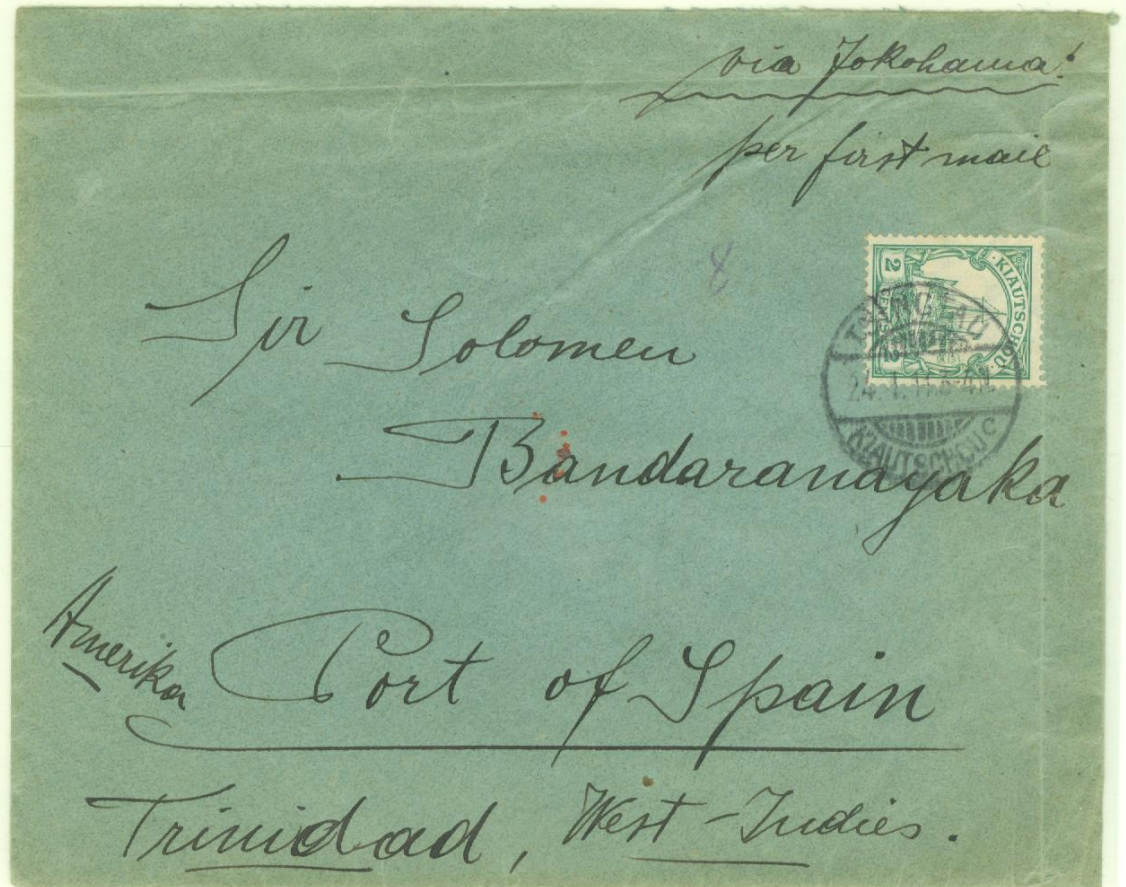 via Yokohama!
per first mail
8
KIAUTSCHOU
2 CENTS 2
TSINGTAU
24.1.11.
KIAUTSCHOU C
Sir Solomen
Bandaranayaka
Amerika
Port of Spain
Trinidad, West-Indies.